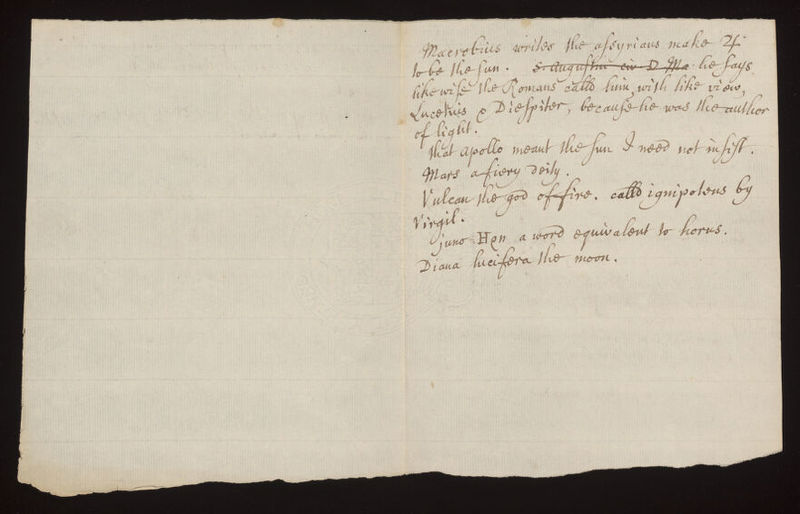 Macrobius writes the assyrians make ♃
to be the sun. S. Augustin civ. D. Ma he says
likewise the Romans calld him, with like view,
Lucetius & Diespiter, because he was the author
of light.
that apollo meant the sun I need not insist.
Mars a fiery deity.
Vulcan the god of fire. calld ignipotens by
Virgil.
juno Ηρη a word equivalent to horus.
Diana lucifera the moon.